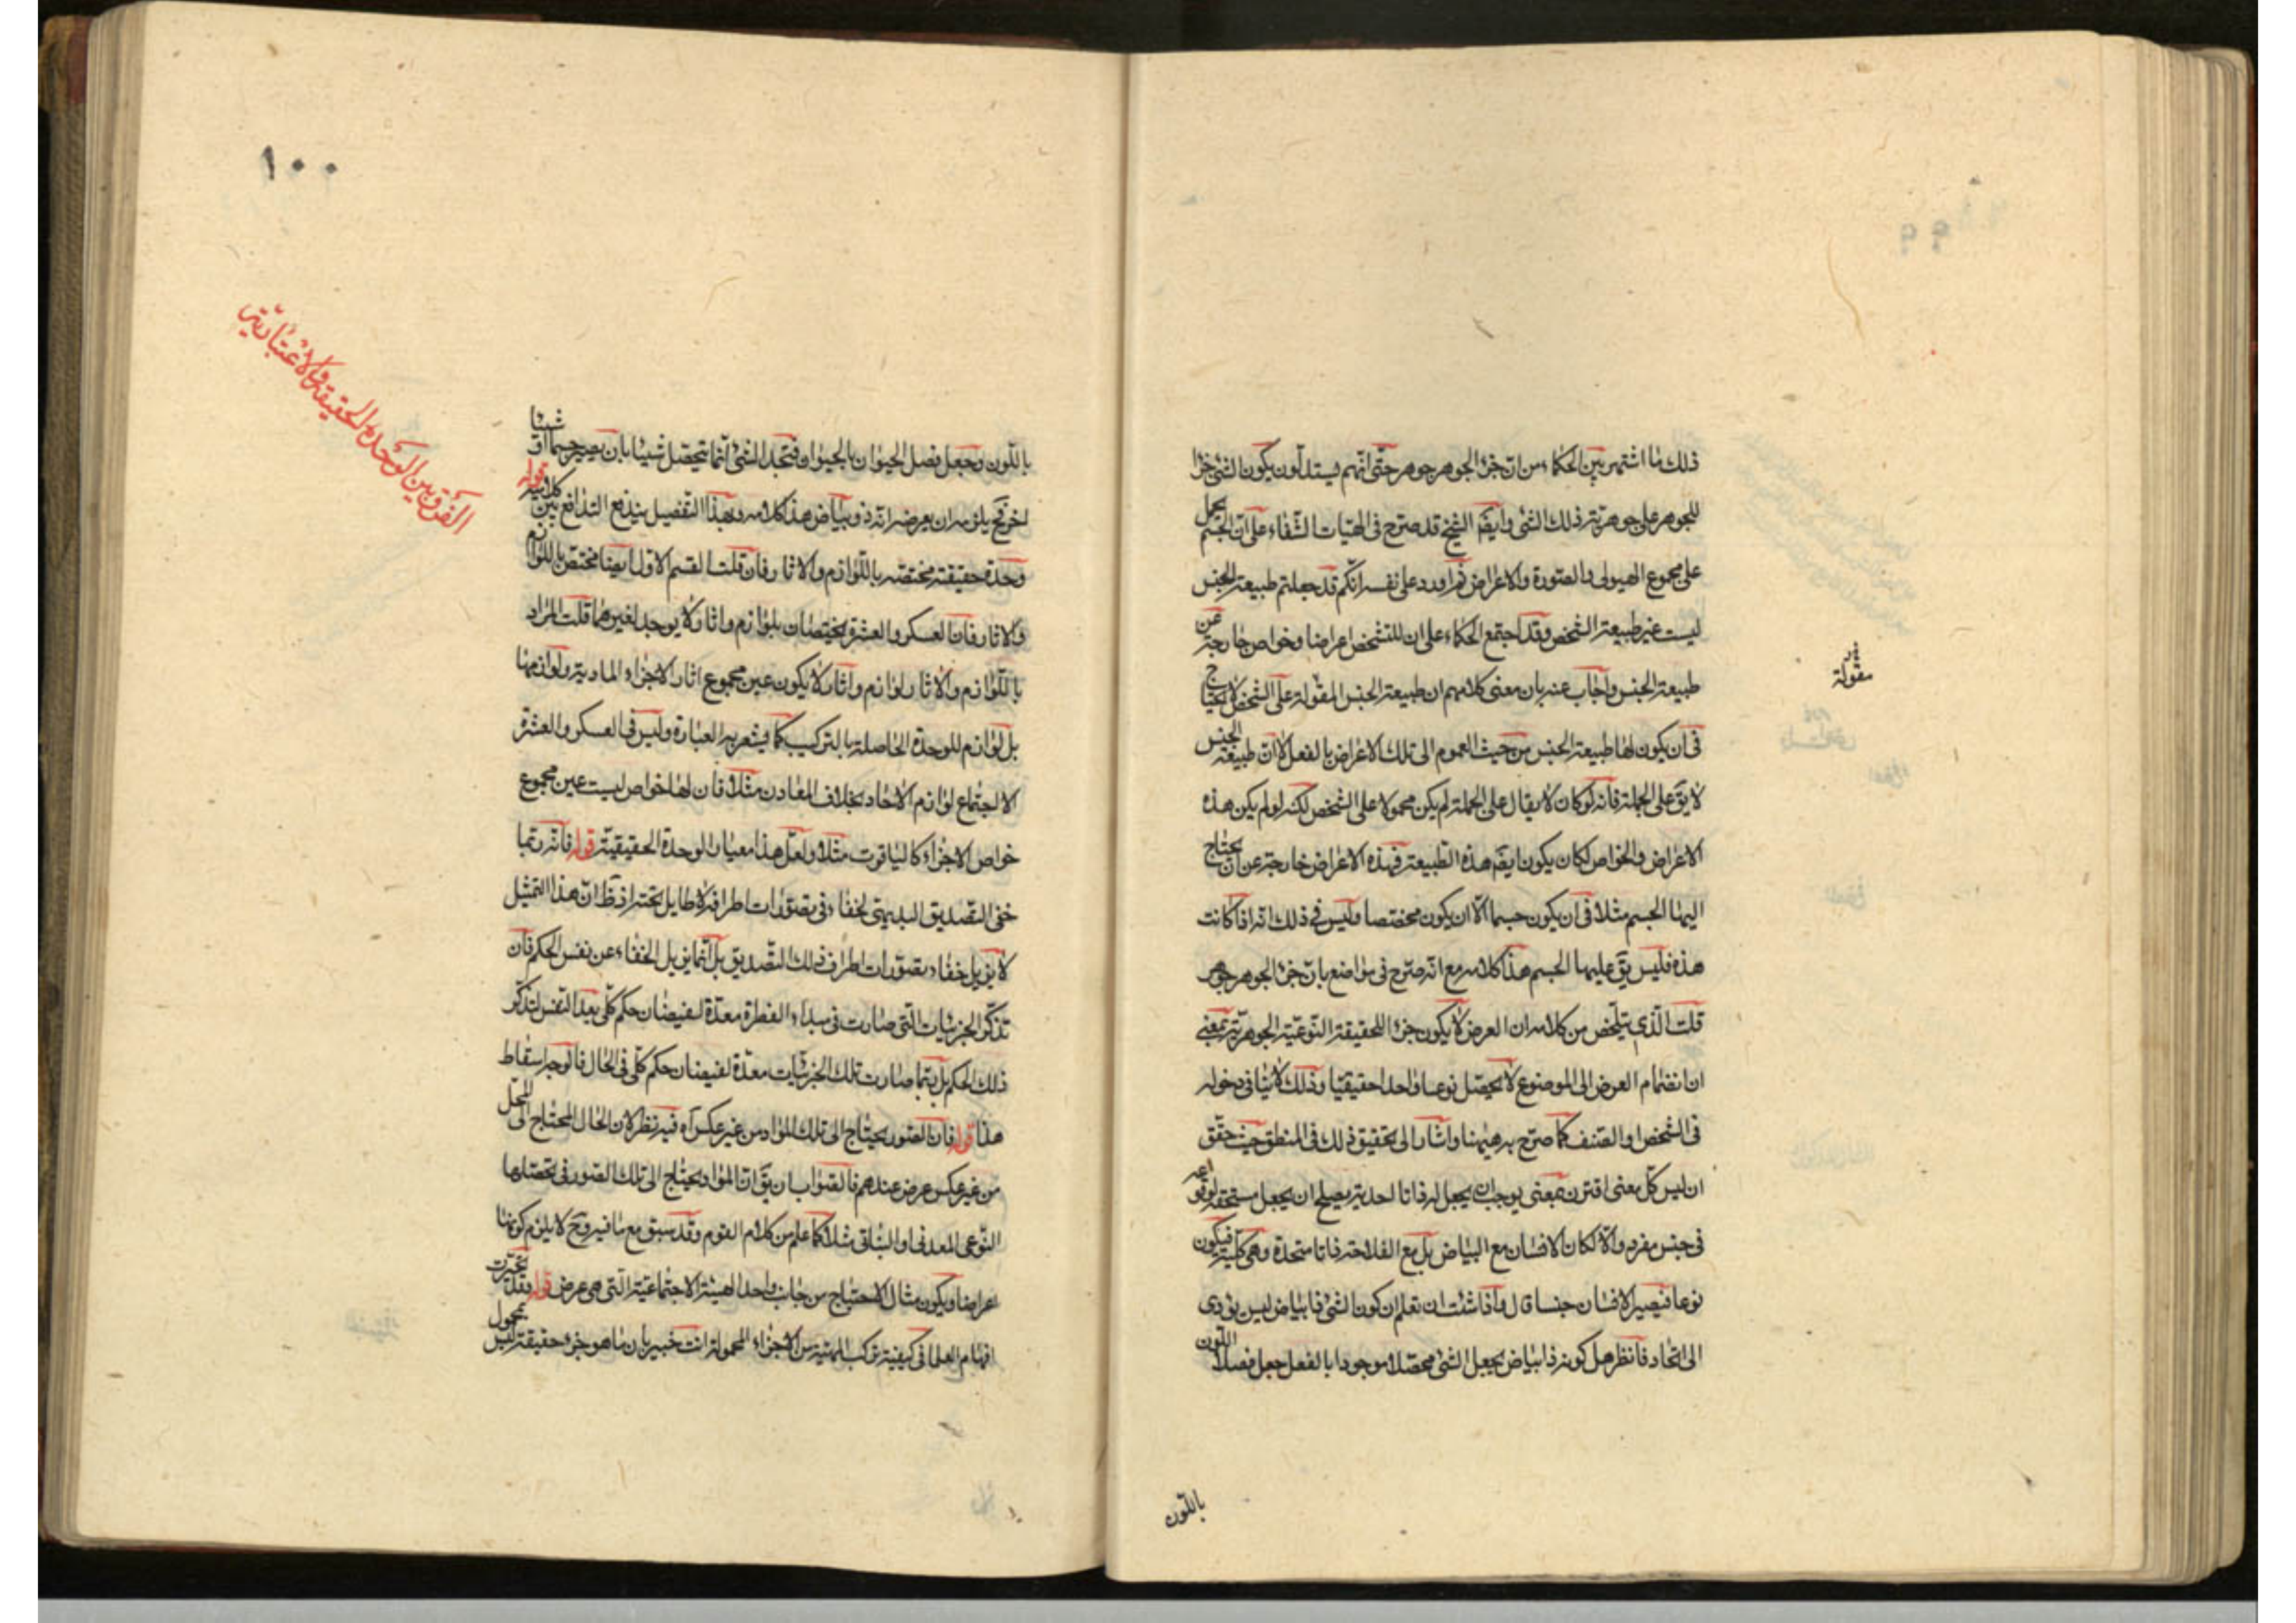 ذلك ما اشتهر بين الحكماء من ان جزء الجوهر جوهر حتى انهم يستدلون بكون الشئ جزءا
للجوهر على جوهرية ذلك الشئ وايضا الشيخ قد صرح فى الهيات الشفاء على ان الجسم يحمل
على مجموع الهيولى والصورة والاعراض ثم اورد على نفسه انكم قد جعلتم طبيعة الجنس
ليست غير طبيعة الشخص وقد اجتمع الحكماء على ان للشخص اعراضا وخواص خارجة عن
طبيعة الجنس واجاب عنه بان معنى كلامهم ان طبيعة الجنس المقولة على الشخص لا يحتاج
مقولة
فى ان يكون لها طبيعة الجنس من حيث العموم الى تلك الاعراض بالفعل لا ان طبيعة الجنس
لا يق على الجملة فانه لو كان لا يقال على الجملة لم يكن محمولا على الشخص لكنه لو لم يكن هذه
الاعراض والخواص لكان يكون ايضا هذه الطبيعة فهذه الاعراض خارجة عن ان يحتاج
اليها الجسم مثلا فى ان يكون جسما الا ان يكون مختصا وليس فى ذلك انه اذا كانت
هذه فليس يق عليها الجسم هذا كلامه مع انه صرح فى مواضع بان جزء الجوهر جوهر
قلت الذى يتلخص من كلامه ان العرض لا يكون جزء اللحقيقة النوعية الجوهرية بمعنى
ان انضمام العرض الى الموضوع لا يحصل نوعا واحدا حقيقيا وذلك لا ينافى دخوله
فى الشخص او الصنف كما صرح به هيهنا واشار الى تحقيق ذلك فى المنطق حيث حقق
ان ليس كل معنى اقترن بمعنى يوجب ان يجعل له ذاتا احدية يصلح ان يجعل مستحقة لوقوعه
فى جنس مفرد والا لكان الانسان مع البياض بل مع الفلاحة ذاتا متحدة وهى كلية فيكون
نوعا فيصير الانسان جنسا قال واذا شئت ان تعلم ان كون الشئ ذا بياض ليس يؤدى
الى اتحاد فانظر هل كونه ذا بياض يجعل الشئ محصلا موجودا بالفعل جعل فصل اللون
باللون
١٠٠
باللون وجعل فصل الحيوان بالحيوان فتجد الشئ انما يتحصل شيئا بان يصير جسما او شيئا
اخر ثم يلزمه ان يعرضه انه ذو بياض هذا كلامه وبهذا التفصيل يندفع التدافع بين كلاميه قوله
الفرق بين الوحدة الحقيقة والاعتبارية
وحدة حقيقته مختصه باللوازم والاثار فان قلت القسم الاول ايضا مختص باللوازم
والاثار فان العسكر والعشرة يختصان بلوازم واثار لا يوجد لغيرهما قلت المراد
باللوازم والاثار لوازم واثار لا يكون عين مجموع اثار الاجزاء المادية ولوازمها
بل لوازم للوحدة الحاصلة بالتركيب كما يشعر به العبارة وليس فى العسكر والعشرة
الا اجتماع لوازم الاحاد بخلاف المعادن مثلا فان لها خواص ليست عين مجموع
خواص الاجزاء كالياقوت مثلا ولعل هذا معيار الوحدة الحقيقية قوله فانه ربما
خفى التصديق البديهى لخفاء فى تصورات اطرافه لا طايل تحته اذ ظ ان هذا التمثيل
لا يزيل خفاء تصورات اطراف ذلك التصديق بل انما يزيل الخفاء عن نفس الحكم فان
تذكر الجزئيات التى صارت فى مبداء الفطرة معدة لفيضان حكم كلى يعد النفس لتذكر
ذلك الحكم بل ربما صارت تلك الجزئيات معدة لفيضان حكم كلى فى الحال فالوجه اسقاط
هذا قوله فان الصور يحتاج الى تلك المواد من غير عكس اه فيه نظر لان الحال المحتاج الى المحل
من غير عكس عرض عندهم فالصواب ان يق ان المواد يحتاج الى تلك الصور فى تحصلها
النوعى المعدنى او النباتى مثلا كما علم من كلام القوم وقد سبق مع ما فيه وح لا يلزم كونها
اعراضا ويكون مثال الاحتياج من جانب واحد الهيئة الاجتماعية التى هى عرض قوله وقد تحيرت
افهام العلماء فى كيفية تركب المهية من الاجزاء المحمولة انت خبير بان ما هو جزء حقيقة ليس بمحمول